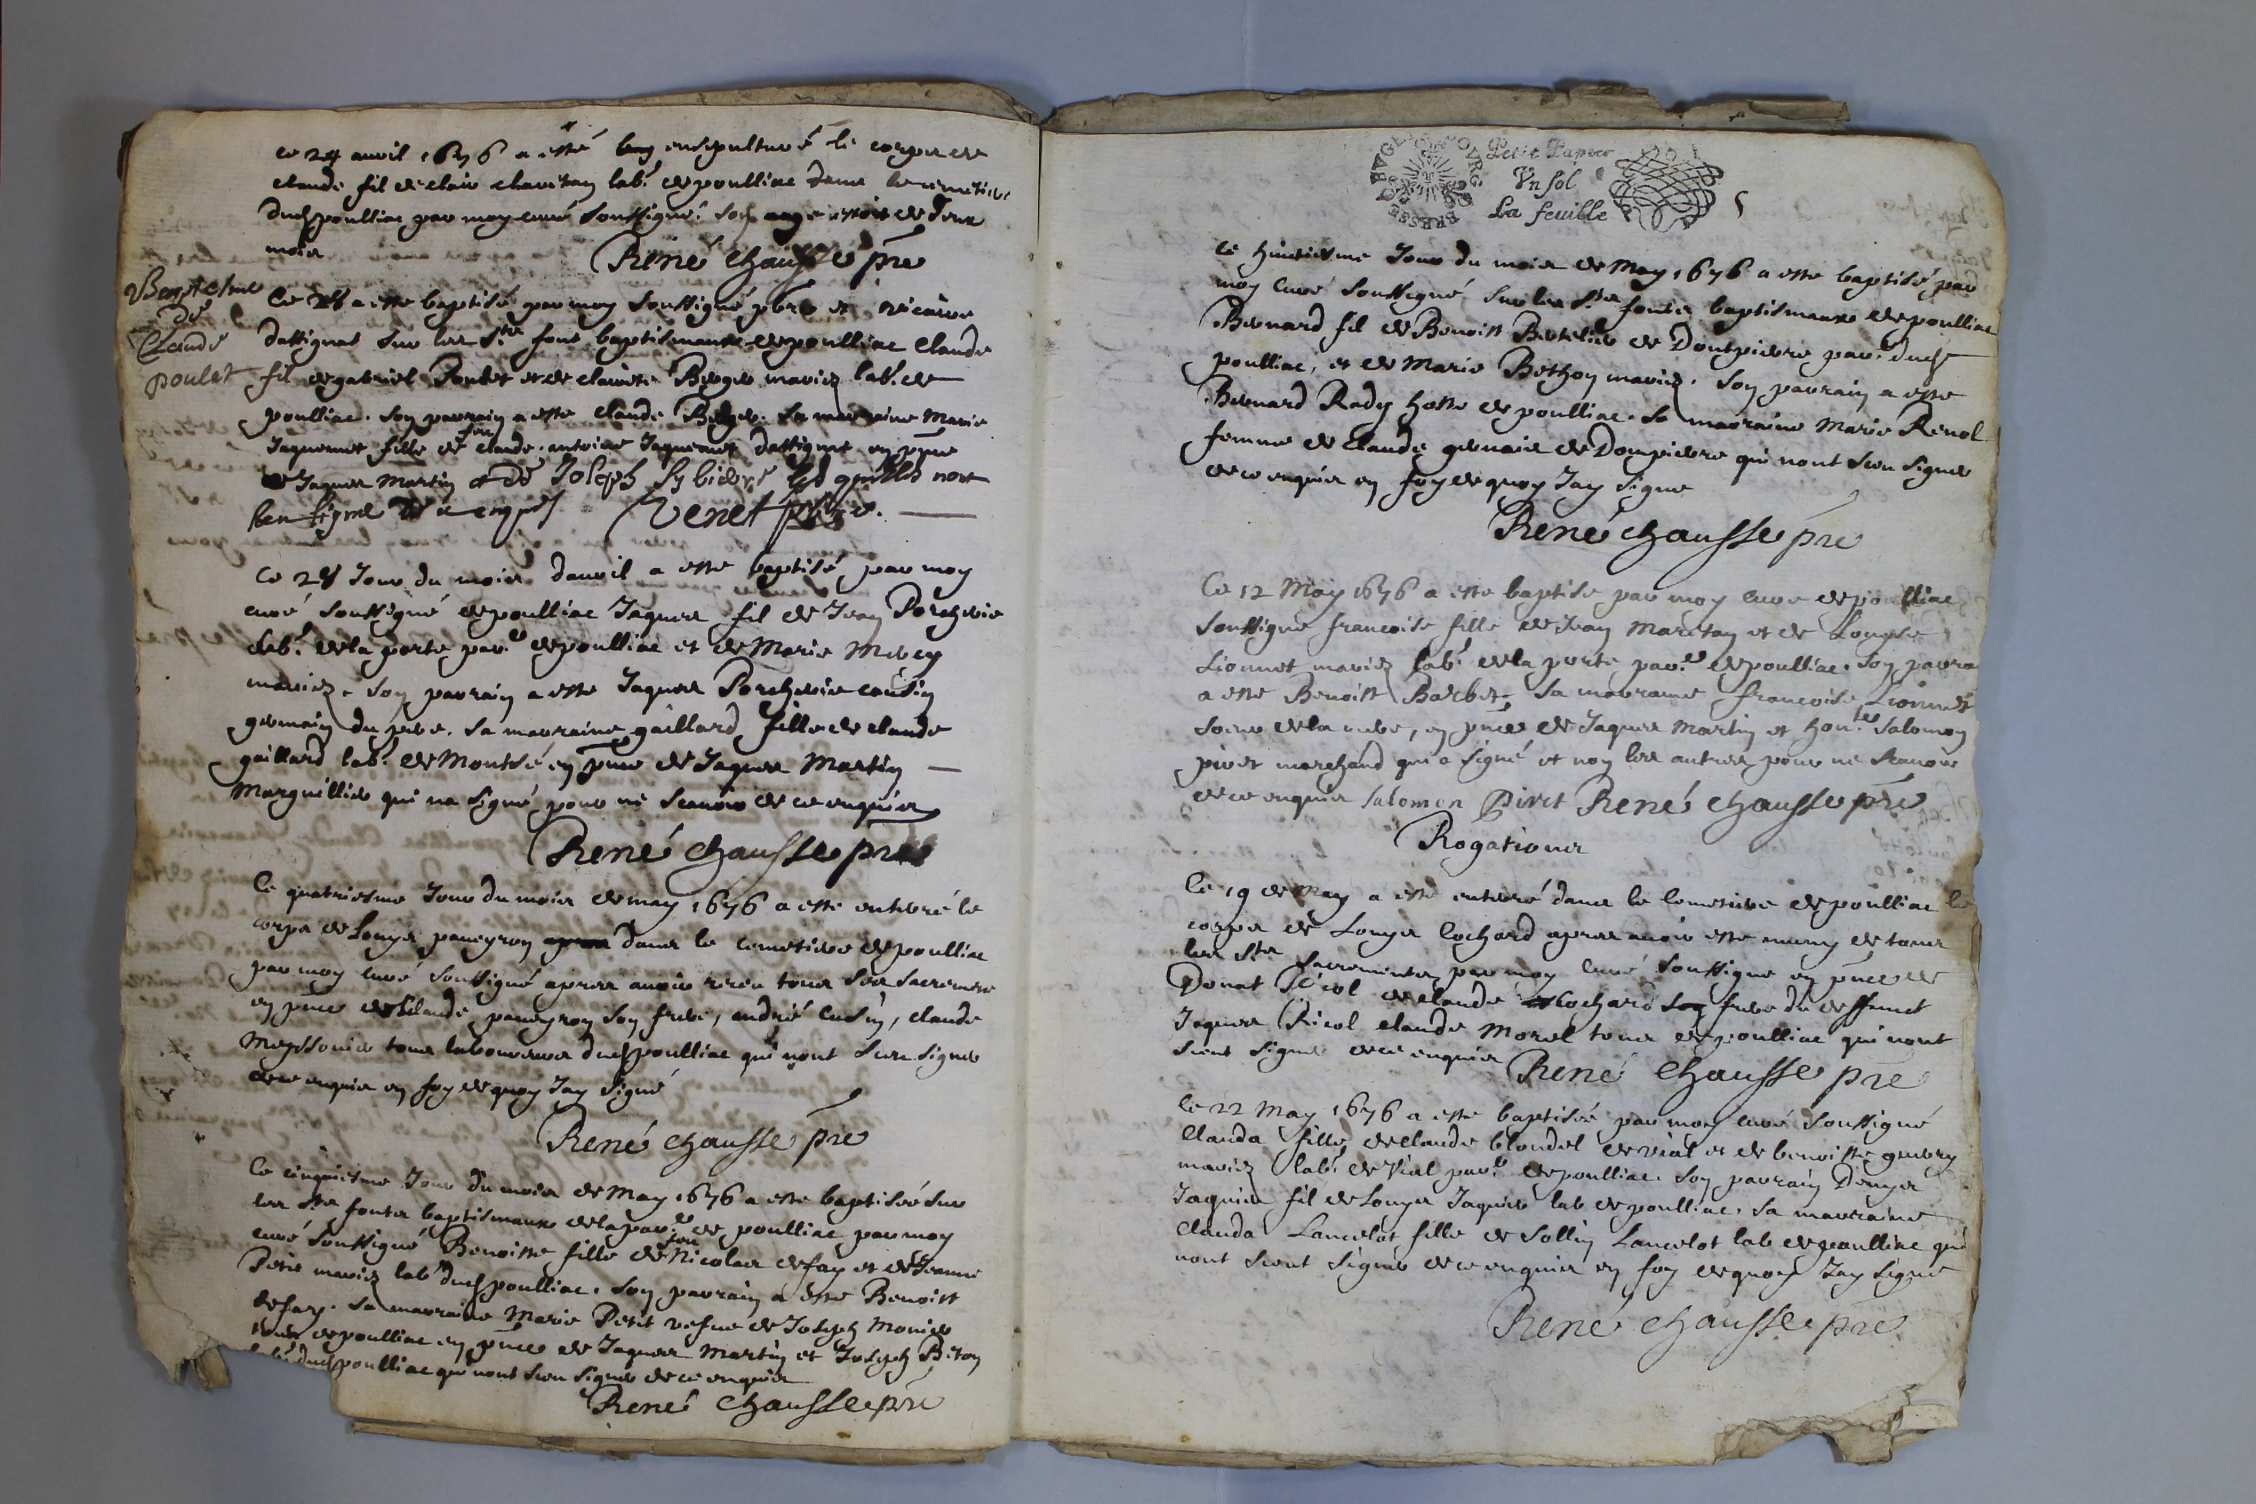 ce 24 auvil 1676 a esté ensepulturé le corps de
claude fil de clair chavitay lab.r de poulliac dans le cemetiere
dud poulliac par moy curé soussigné. son aage estoit de deux
mois
René chausse pre
Baptesme
de
Claude
poulet
Ce a este baptisé par moy soussigné pbre et vicaire
dattignat sur les Sts font baptismaux de poulliac claude
fil de gabriel Poulet et de clauda Berger mariez lab. de
poulliac. son parrain a este claude Berger. sa marraine Marie
Jaquemet fille de feu claude antoine Jaquemet dattignat en pnce
de Jaques Martin et de Joseph qui nont
sceu signe de ce enquis Venet pbre.
Ce 28 Jour du mois dauvil a este baptisé par moy
curé soussigné de poulliac Jaques fil de Jean Porcherie
lab.r de la porte par.e de poulliac et de Marie Mercy
mariez. son parrain a este Jaques Porcherie cousin
germain du pere. sa marraine gaillard fille de claude
gaillard lab.r de Montsé en pnce de Jaques Martin
Marguillier qui na signé pour ne scavoir de ce enquis
René chausse pre
Ce quatriesme Jour du mois de may 1676 a este enterré le
corps de Louys paneyron dans le cemetiere de poulliac
par moy curé soussigné apres avoir receu tous ses sacremens
en pnce de Claude paneyron son frere, andré cusin, claude
Meyssonier tous laboureurs dud poulliac qui nont sceu signer
de ce enquis en foy de quoy Jay signé
René chausse pre
Ce cinquiesme Jour du mois de May 1676 a este baptisée sur
les Sts fonts baptismaux de la par.e de poulliac par moy
curé soussigné Benoiste fille de feu Nicolas defay et de Jeanne
Petit mariez lab.r dud poulliac. son parrain a este Benoist
defay. sa marraine Marie Petit vefue de Joseph Monier
tous de poulliac en pnce de Jaques Martin et Joseph Beton
lab.r dud poulliac qui nont sceu signer de ce enquis
René chausse pre
Petit Papier
Vn sol
La feuille
Ce huictiesme Jour du mois de May 1676 a este baptisé par
moy curé soussigné sur les Sts fonts baptismaux de poulliac
Bernard fil de Benoist Bertelier de Dompierre par.e dud
poulliac, et de Marie Bethoy mariez. son parrain a este
Bernard Rady hoste de poulliac. sa marraine Marie Renol
femme de claude gervais de Dompierre qui nont sceu signer
de ce enquis en foy de quoy Jay signe
René chausse pre
Ce 12 May 1676 a este baptise par moy cure de poulliac
soussigne francoise fille de Jean Maritay et de Louyse
Lionnet mariez lab.r de la porte par.e de poulliac. son parra
a este Benoist Barbet. sa marraine francoise Lionnet
soeur de la mere, en pnce de Jaques Martin et hon.te salomon
pivet marchand qui a signé et non les autres pour ne scavoir
de ce enquis salomon Pivet René chausse pre
Rogations
Ce 19 de May a esté enterré dans le Cemetiere de poulliac le
corps de Louys Cochard apres avoir este muny de tous
les Sts sacrements par moy Curé soussigne en pnce de
Donat Ricol de claude Cochard son frere du deffunct
Jaques Ricol claude Morel tous de poulliac qui nont
sceut signer de ce enquis René chausse pre
Ce 22 May 1676 a este baptisée par moy curé soussigné
Clauda fille de claude blondel de vial et de benoiste guerry
mariez lab.r de Vial par.e de poulliac. son parrain Denys
Jaquier fil de Louys Jaquier lab de poulliac. sa marraine
Clauda Lancelot fille de Lancelot lab de poulliac qui
nont sceut signer de ce enquis en foy de quoy Jay signe
René chausse pre